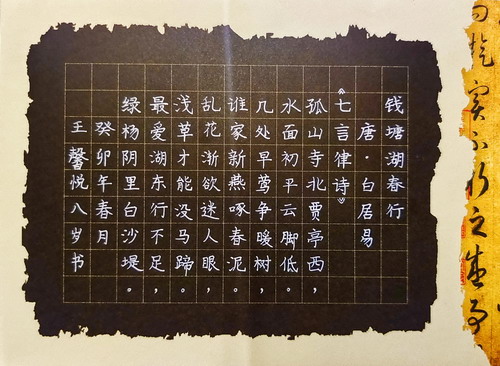 钱塘湖春行
唐·白居易
《七言律诗》
孤山寺北贾亭西，
水面初平云脚低。
几处早莺争暖树，
谁家新燕啄春泥。
乱花渐欲迷人眼，
浅草才能没马蹄。
最爱湖东行不足，
绿杨阴里白沙堤。
癸卯年春月
王馨悦八岁书